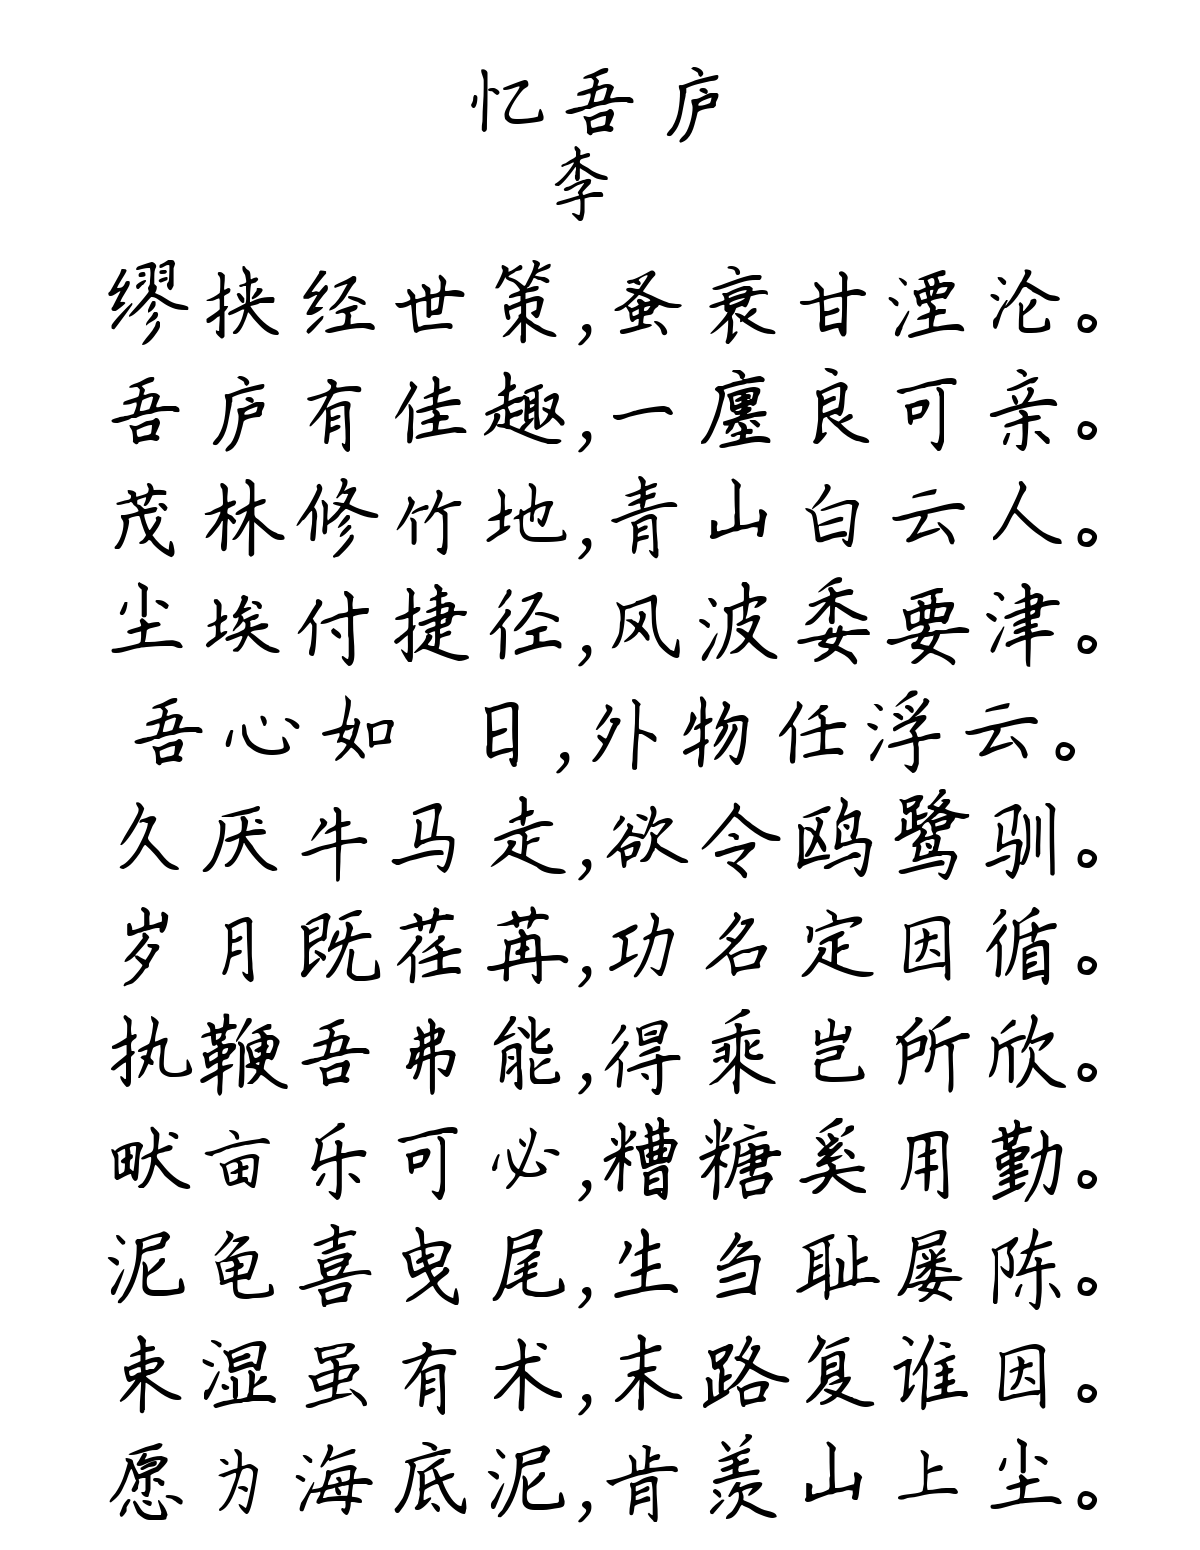 忆吾庐
李
缪挟经世策,蚤衰甘湮沦。
吾庐有佳趣,一廛良可亲。
茂林修竹地,青山白云人。
尘埃付捷径,风波委要津。
吾心如 日,外物任浮云。
久厌牛马走,欲令鸥鹭驯。
岁月既荏苒,功名定因循。
执鞭吾弗能,得乘岂所欣。
畎亩乐可必,糟糖奚用勤。
泥龟喜曳尾,生刍耻屡陈。
束湿虽有术,末路复谁因。
愿为海底泥,肯羡山上尘。